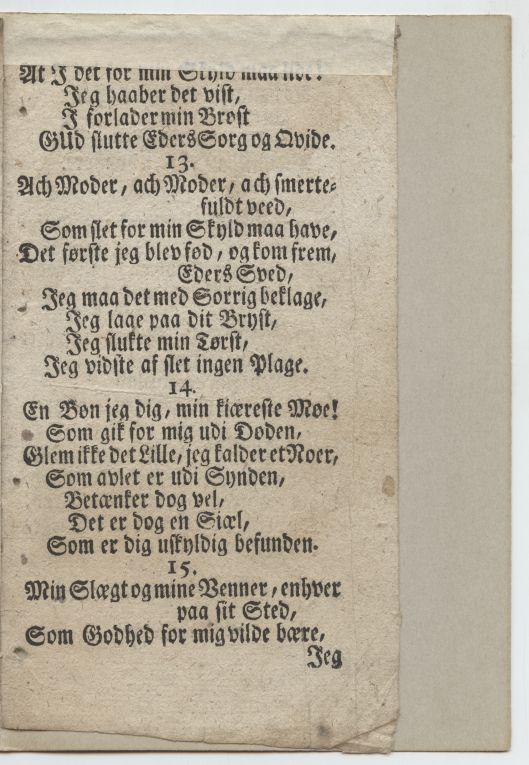 At I det for min Skyld maa
Jeg haaber det vist,
I forlader min Brøst
GUd slutte Eders Sorg og Qvide.
13.
Ach Moder, ach Moder, ach smerte-
fuldt veed,
Som slet for min Skyld maa have,
Det første jeg blev fød, og kom frem,
Eders Sved,
Jeg maa det med Sorrig beklage,
Jeg laae paa dit Bryst,
Jeg slukte min Tørst,
Jeg vidste af slet ingen Plage.
14.
En Bøn jeg dig, min kiæreste Møe!
Som gik for mig udi Døden,
Glem ikke det Lille, jeg kalder et Noer,
Som avlet er udi Synden,
Betænker dog vel,
Det er dog en Siæl,
Som er dig uskyldig befunden.
15.
Min Slægt og mine Venner, enhver
paa sit Sted,
Som Godhed for mig vilde bære,
Jeg